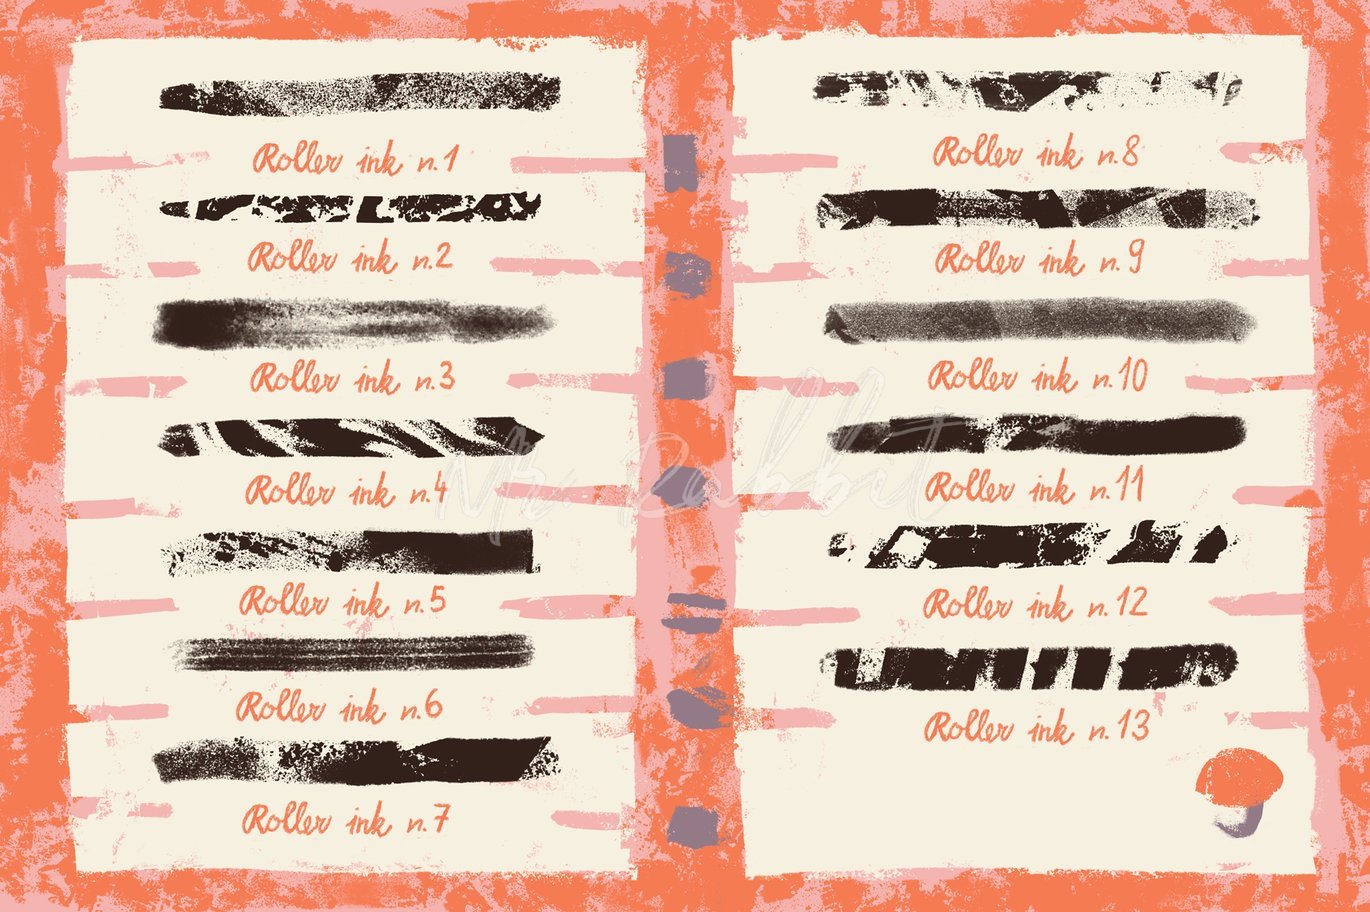 Roller ink n.1
Roller ink n.2
Roller ink n.3
Roller ink n.4
Roller ink n.5
Roller ink n.6
Roller ink n.7
Roller ink n.8
Roller ink n.9
Roller ink n.10
Roller ink n.11
Roller ink n.12
Roller ink n.13
Mr. Rabbit